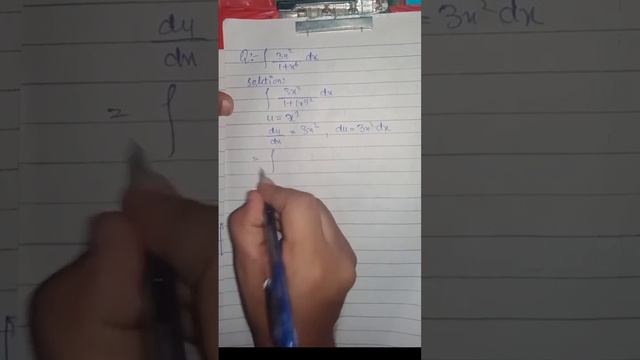 Q:- ∫ 3x²/1+x⁶ dx
Solution:
∫ 3x²/1+(x³)² dx
u = x³
du/dx = 3x², du = 3x² dx
= ∫